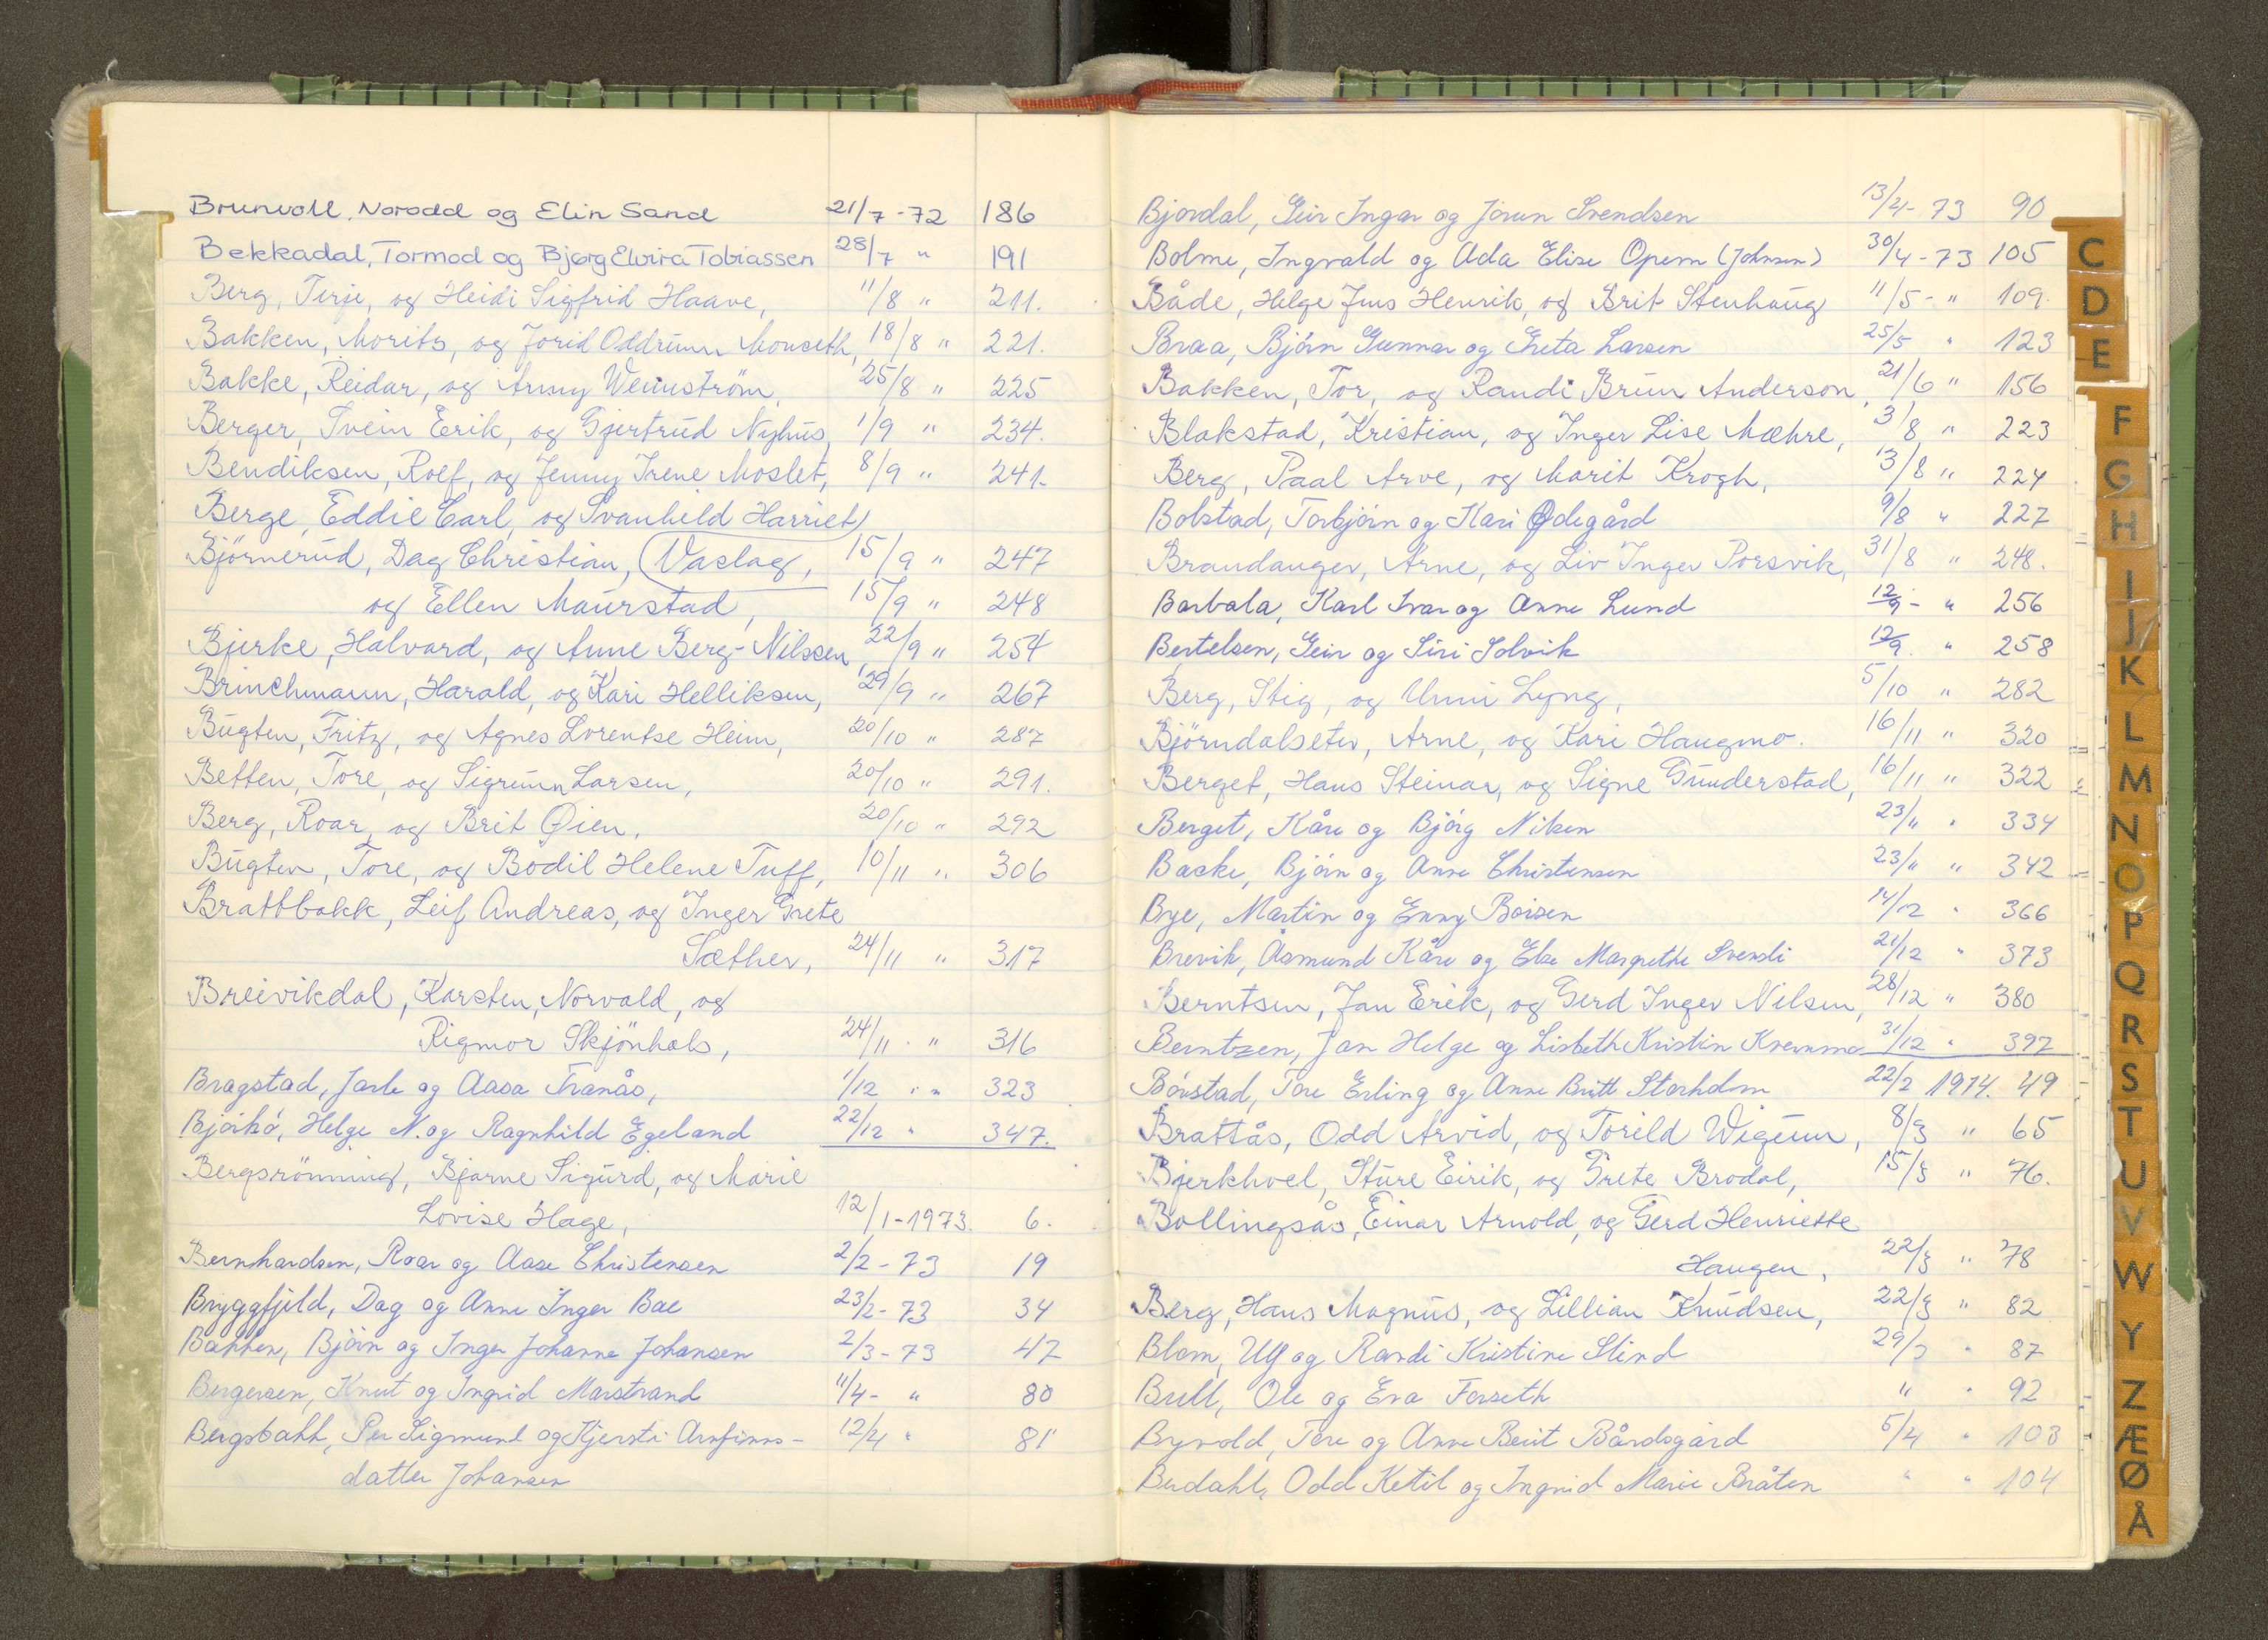 Brunvoll, Norodd og Elin Sand 21/7-72 186
Bekkadal, Tormod og Bjørg Elvira Tobiassen 28/7 " 191
Berg, Terje, og Heidi Sigfrid Haave, 11/8 " 211.
Bakken, Morits, og Jorid Oddrunn Monseth, 18/8 " 221.
Bakke, Reidar, og Anny Wennström, 25/8 " 225
Berger, Svein Erik, og Gjertrud Nyhus, 1/9 " 234.
Bendiksen, Rolf, og Jenny Irene Moslet, 8/9 " 241.
Berge, Eddie Carl, og Svanhild Harriet
Björnerud, Dag Christian, (Vaslag, 15/9 " 247
og Ellen Maurstad, 15/9 " 248
Bjerke, Halvard, og Anne Berg-Nilssen, 22/9 " 254
Brinchmann, Harald, og Kari Helliksen, 29/9 " 267
Bugten, Fritz, og Agnes Lorentse Heim, 20/10 " 287
Betten, Tore, og Sigrunn Larsen, 20/10 " 291.
Berg, Roar, og Brit Øien, 20/10 " 292
Bugten, Tore, og Bodil Helene Tuff, 10/11 " 306
Brattbakk, Leif Andreas, og Inger Grete
Sæther, 24/11 " 317
Breivikdal, Karsten, Norvald, og
Rigmor Skjönhals, 24/11 " 316
Bragstad, Jarle og Aasa Tranås, 1/12 " 323
Bjórkó, Helge N. og Ragnhild Egeland 22/12 " 347.
Bergsrönning, Bjarne Sigurd, og Marie
Lovise Hage, 12/1-1973. 6.
Bernhardsen, Roar og Aase Christensen 2/2-73 19
Bryggfjeld, Dag og Anne Inger Bae 23/2-73 34
Bakken, Bjórn og Inger Johanne Johansen 2/3-73 47
Bergersen, Knut og Ingrid Marstrand 11/4- " 80
Bergsbakk, Per Sigmund og Kjersti Arnfinns- 12/4 " 81
datter Johansen
Bjordal, Geir Ingar og Jorun Svendsen 13/4-73 90
Bolme, Ingvald og Ada Elise Opem (Johnsen) 30/4-73 105
Både, Helge Jens Henrik, og Brit Stenhaug 11/5- " 109.
Braa, Bjórn Gunnar og Greta Larsen 25/5 " 123
Bakken, Tor, og Randi Brun Anderson, 21/6 " 156
Blakstad, Kristian, og Inger Lise Mæhre, 3/8 " 223
Berg, Paal Arve, og Marit Krogh, 3/8 " 224
Bolstad, Torbjórn og Kari Ødegård 9/8 " 227
Brandanger, Arne, og Liv Inger Porsvik, 31/8 " 248.
Barbala, Karl Ivar og Anne Lund 12/9- " 256
Bertelsen, Geir og Siri Solvik 12/9. " 258
Berg, Stig, og Unni Lyng, 5/10 " 282
Björndalseter, Arne, og Kari Haugmo. 16/11 " 320
Berget, Hans Steinar, og Signe Gunderstad, 16/11 " 322
Berget, Kåre og Bjórg Nilsen 23/11 " 334
Backe, Bjórn og Anne Christensen 23/11 " 342
Bye, Martin og Enny Boisen 14/12 " 366
Brevik, Åsmund Kåre og Else Margrethe Svendi 21/12 " 373
Berntsen, Jan Erik, og Gerd Inger Nilsen, 28/12 " 380
Berntzen, Jan Helge og Lisbeth Kristin Kvernmo 31/12 " 397
Bórstad, Tore Erling og Anne Britt Storholm 22/2 1974. 49
Brattås, Odd Arvid, og Torild Wigum, 8/3 " 65
Bjerkhoel, Sture Eirik, og Grete Brodal, 15/3 " 76.
Bollingsås, Einar Arnold, og Gerd Henriette
Haugen, 22/3 " 78
Berg, Hans Magnus, og Lillian Knudsen, 22/3 " 82
Blom, Ulf og Randi Kristine Slind 29/3 " 87
Bull, Ole og Eva Forseth " " 92
Byvold, Tore og Anne Berit Bårdsgård 5/4 " 103
Budahl, Odd Ketil og Ingrid Marie Bråten " " 104
C
D
E
F
G
H
I
J
K
L
M
N
O
P
Q
R
S
T
U
V
W
Y
Z
Æ
Ø
Å